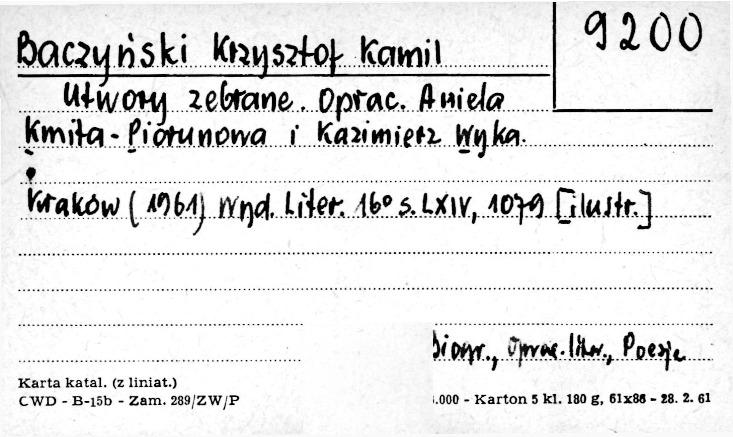 9200
Baczyński Krzysztof Kamil
Utwory zebrane. Oprac. Aniela
Kmita-Piorunowa i Kazimierz Wyka.
Kraków (1961) Wyd. Liter. 16° s. LXIV, 1079 [ilustr.]
Oprac. liter., Poezje
Karta katal. (z liniat.)
CWD - B-15b - Zam. 289/ZW/P
.000 - Karton 5 kl. 180 g, 61x86 - 28. 2. 61